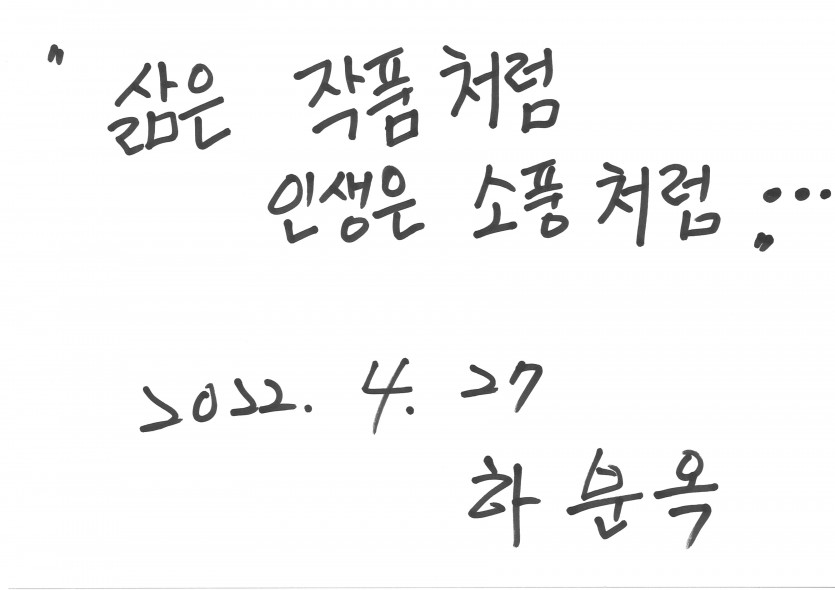 " 삶은 작품처럼
인생은 소풍처럼 ... "
2022. 4. 27
하분옥